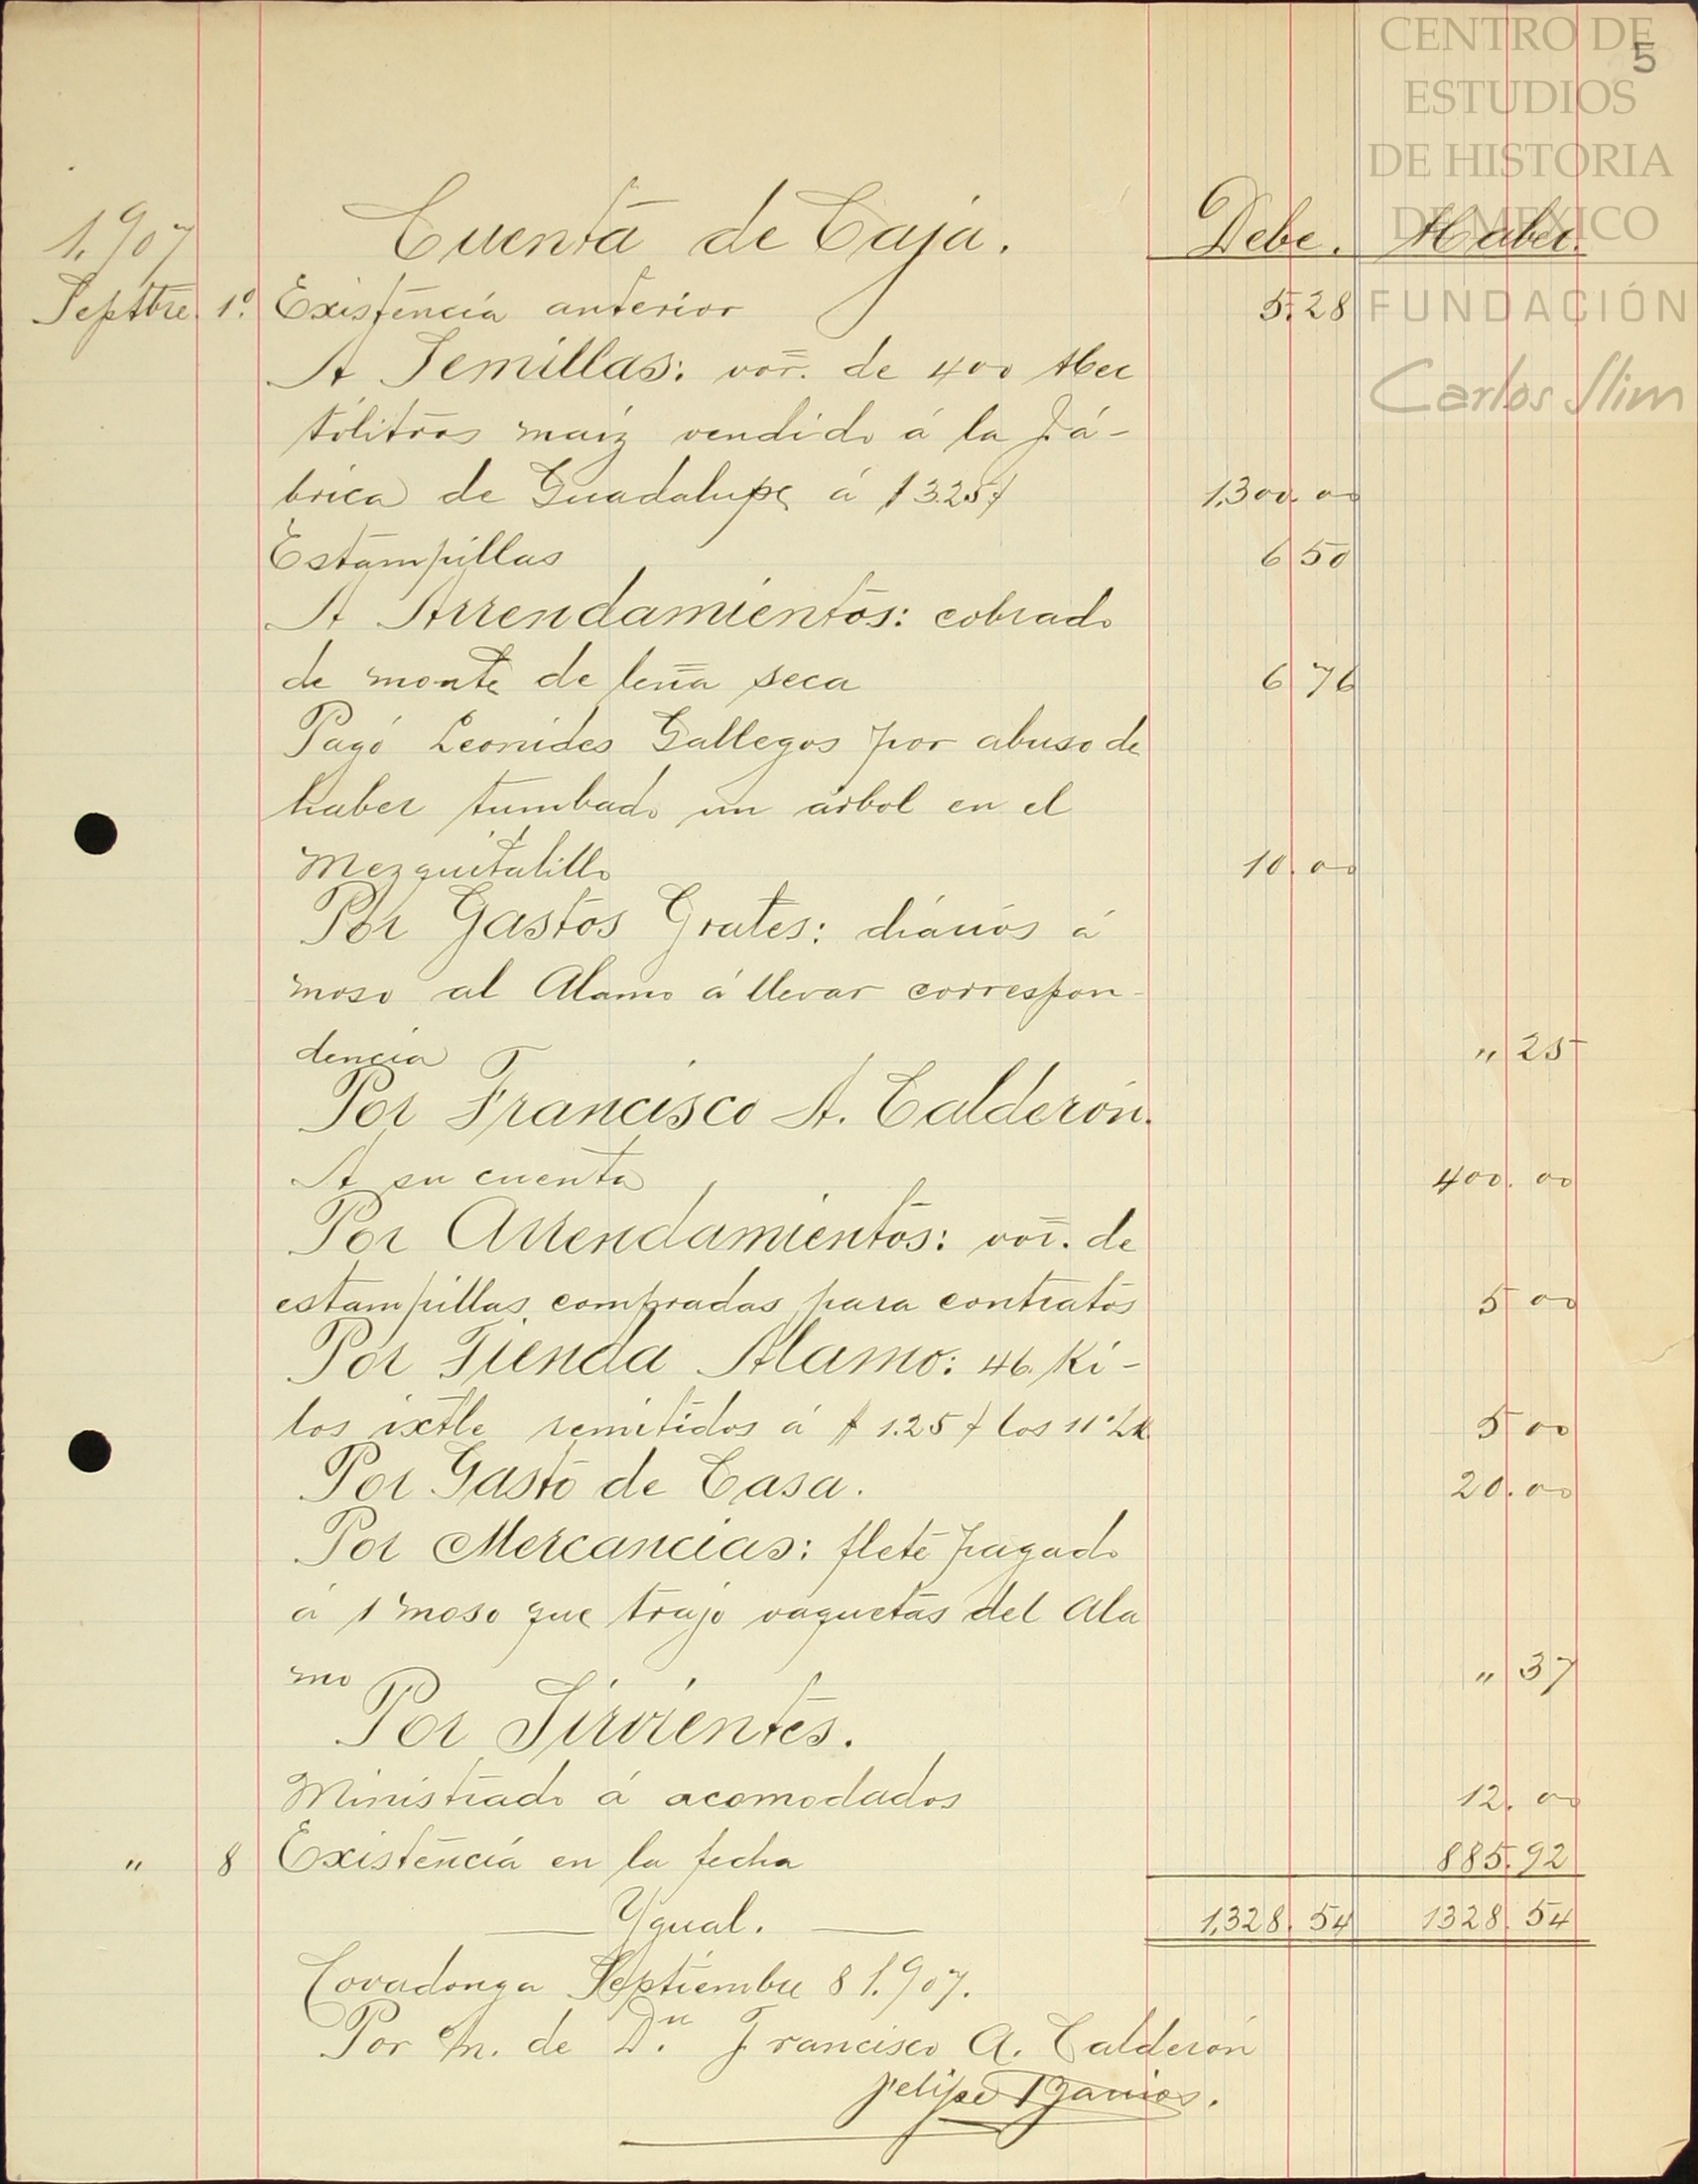 CENTRO DE
ESTUDIOS
DE HISTORIA
DE MEXICO
FUNDACIÓN
Carlos Slim
5
1.907 Cuenta de Caja. Debe. Haber.
Septbre. 1º. Existencia anterior 5.28
A Semillas: vor. de 400 Hec
tólitros maiz vendido á la Fá-
brica de Guadalupe á $ 3.25 ¢ 1,300.00
Estampillas 6 50
A Arrendamientos: cobrado
de monte de leña seca 6 76
Pagó Leonides Gallegos por abuso de
haber tumbado un árbol en el
Mezquitalillo 10.00
Por Gastos Grales: diarios á
moso al Alamo á llevar correspon-
dencia " 25
Por Francisco A. Calderón.
A su cuenta 400.00
Por Arrendamientos: vor. de
estampillas compradas para contratos 5 00
Por Tienda Alamo: 46. Ki-
los ixtle remitidos á $ 1.25 ¢ los 11 ½ K 5 00
Por Gasto de Casa. 20.00
Por Mercancias: flete pagado
á 1 moso que trajo vaquetas del Ala
mo " 37
Por Sirvientes.
Ministrado á acomodados 12.00
" 8 Existencia en la fecha 885.92
Ygual. 1,328.54 1328.54
Covadonga Septiembre 8 1.907.
Por M. de Dn. Francisco A. Calderón
Felipe